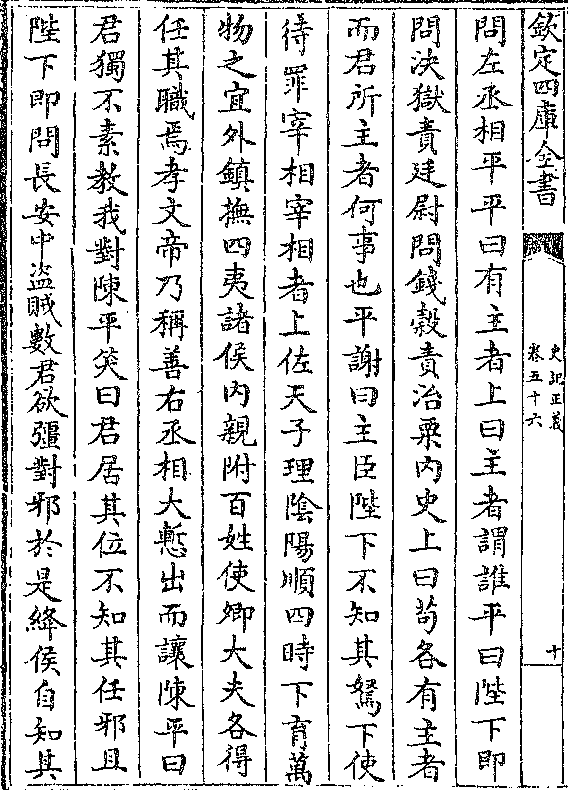 欽定四庫全書
史記正義
卷五十六
十
問左丞相平平曰有主者上曰主者謂誰平曰陛下即
問決獄責廷尉問錢穀責治粟內史上曰茍各有主者
而君所主者何事也平謝曰主臣陛下不知其駑下使
待罪宰相宰相者上佐天子理陰陽順四時下育萬
物之宜外鎮撫四夷諸侯內親附百姓使卿大夫各得
任其職焉孝文帝乃稱善右丞相大慙出而讓陳平曰
君獨不素教我對陳平笑曰君居其位不知其任邪且
陛下即問長安中盜賊數君欲彊對邪於是絳侯自知其